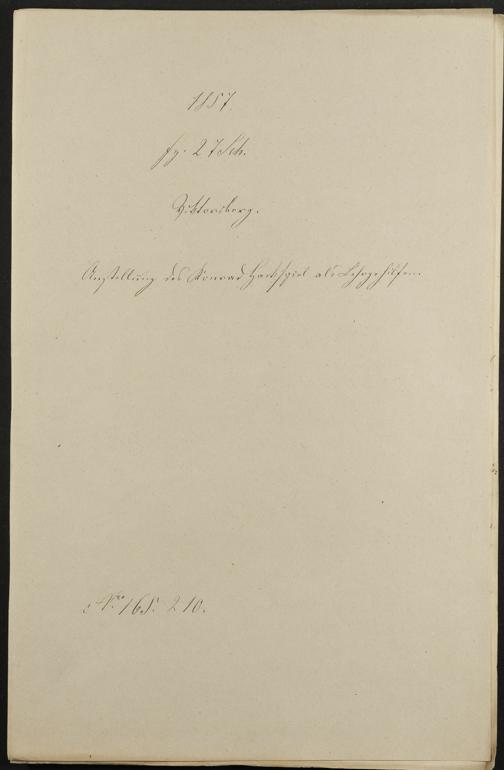 1857.
fz. 27 Sch.
Viktorsberg.
Anstellung des Konrad Hartspiel als Lehrgehilfen.
Nro. 165. 210.